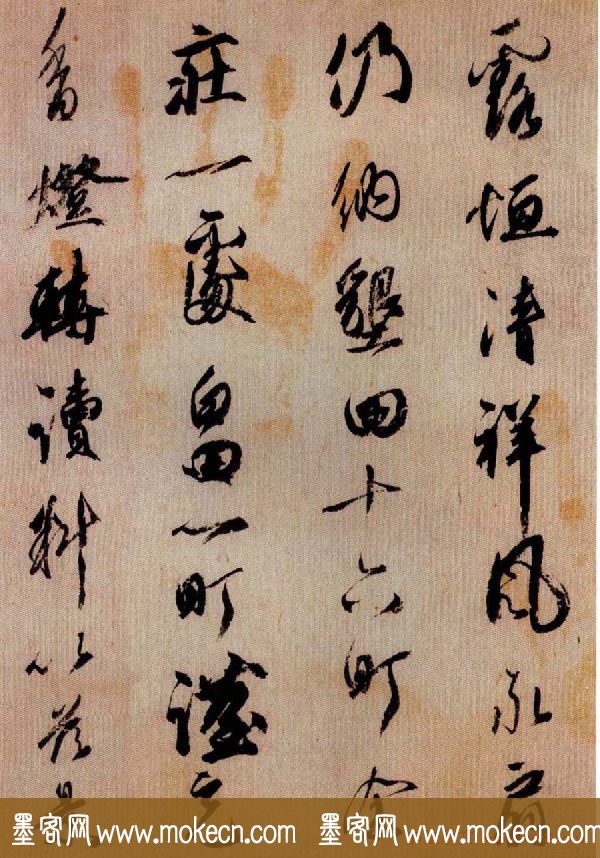 露恒清祥風永扇
仍納墾田十六町余
莊一處畠一町謹充
香燈轉讀料以茲
墨客网 www.mokecn.com 墨客网 www.mokecn.com